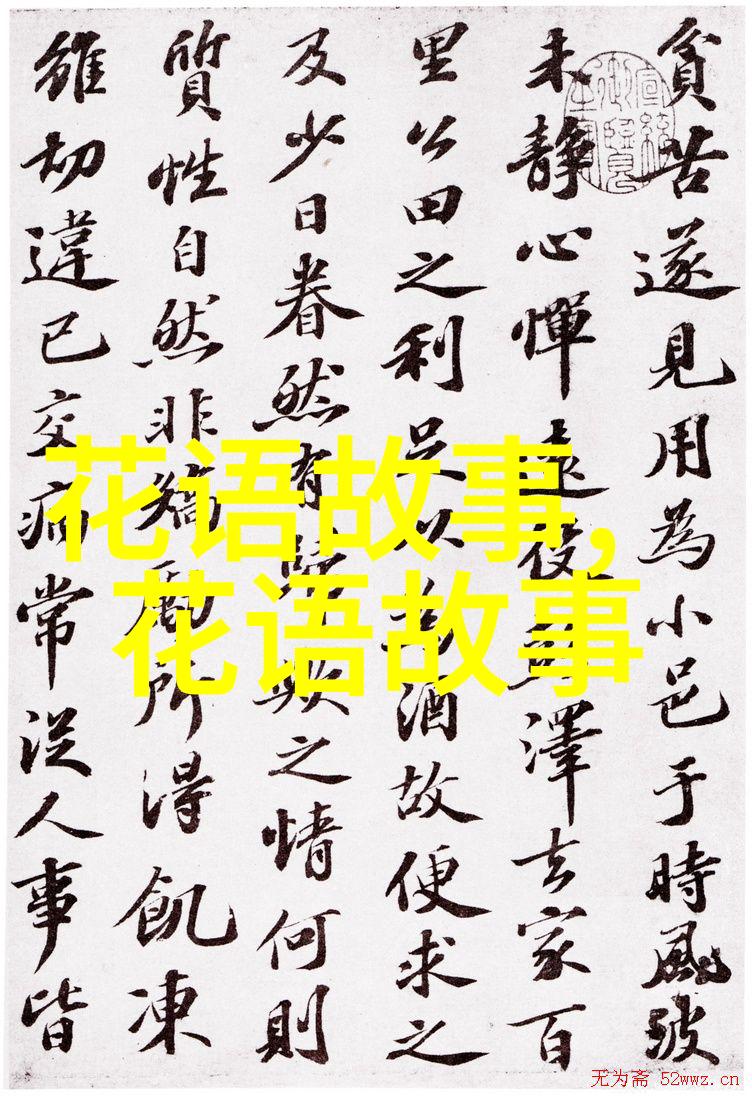 貧苦遂見用為小邑于時風波
未靜心憚遠役彭澤去家百
里公田之利足以為酒故便求之
及少日眷然有歸歟之情何則
質性自然非矯勵所得飢凍
雖切違已交病常從人事皆
花语故事,
花语故事
无为斋 52wwz.cn